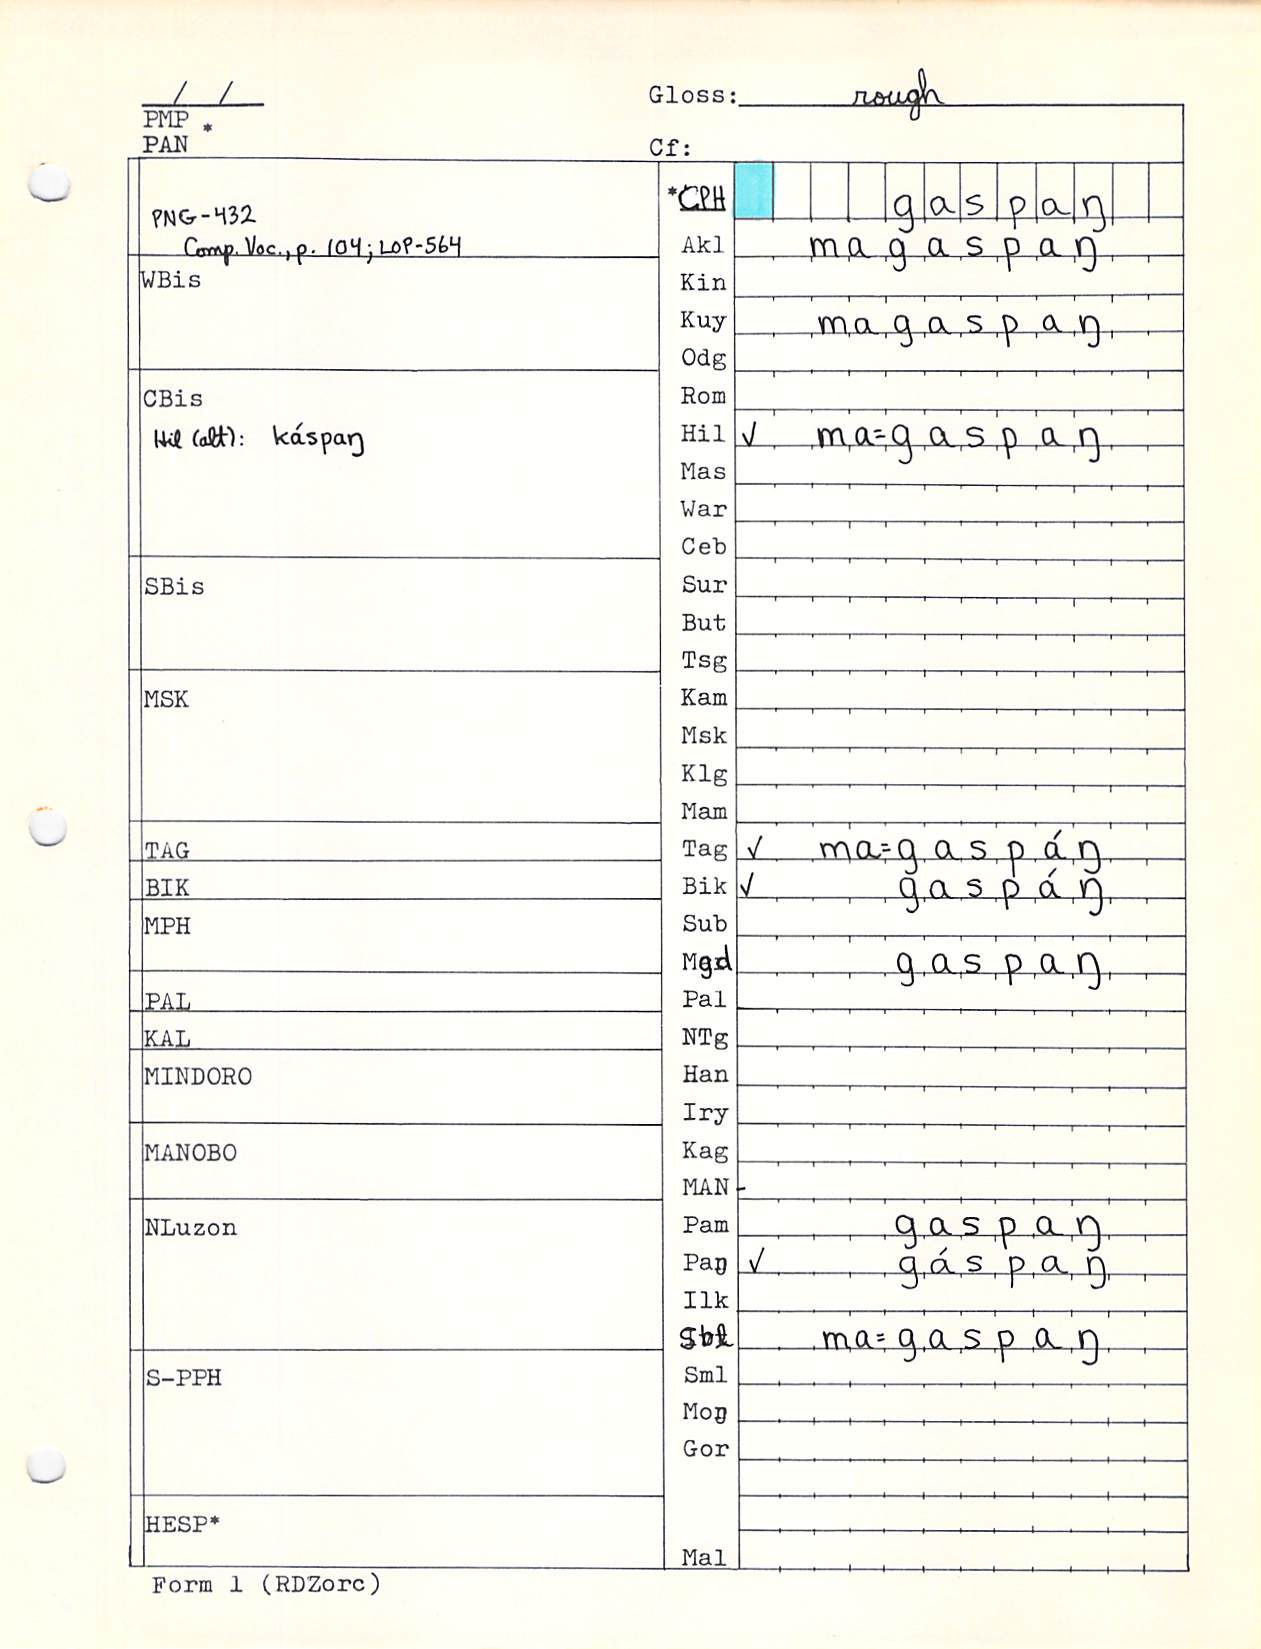 / /
Gloss: rough
PMP *
PAN
Cf:
*CPH gaspaŋ
PNG-432
Comp. Voc., p. 104; LOP-564
Akl magaspaŋ
WBis
Kin
Kuy magaspaŋ
Odg
CBis
Rom
Hil (alt): káspaŋ
Hil ✓ ma=gaspaŋ
Mas
War
Ceb
SBis
Sur
But
Tsg
MSK
Kam
Msk
Klg
Mam
TAG
Tag ✓ ma=gaspáŋ
BIK
Bik ✓ gaspáŋ
MPH
Sub
Mgd gaspaŋ
PAL
Pal
KAL
NTg
MINDORO
Han
Iry
MANOBO
Kag
MAN-
NLuzon
Pam gaspaŋ
Paŋ ✓ gáspaŋ
Ilk
Sbl ma=gaspaŋ
S-PPH
Sml
Moŋ
Gor
HESP*
Mal
Form 1 (RDZorc)